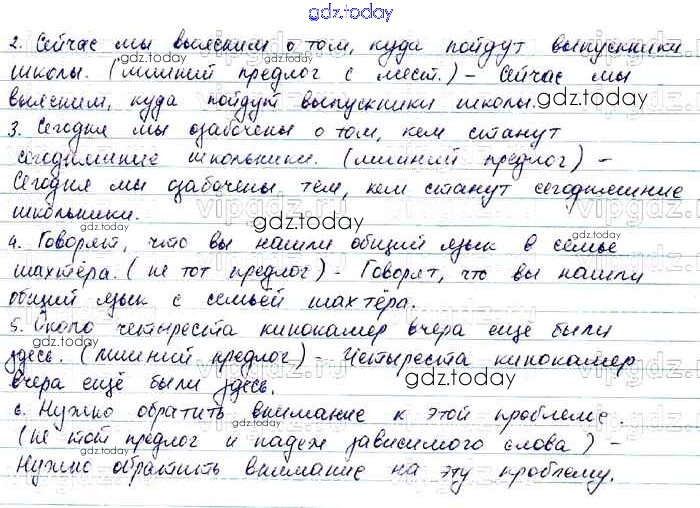 gdz.today
2. Сейчас мы выясним о том, куда пойдут выпускники
школы. (лишний предлог с мест.) – Сейчас мы
выясним, куда пойдут выпускники школы.
3. Сегодня мы озабочены о том, кем станут
сегодняшние школьники. (лишний предлог) –
Сегодня мы озабочены тем, кем станут сегодняшние
школьники.
4. Говорят, что вы нашли общий язык в семье
шахтёра. (не тот предлог) – Говорят, что вы нашли
общий язык с семьёй шахтёра.
5. Около четыреста кинокамер вчера ещё были
здесь. (лишний предлог) – Четыреста кинокамер
вчера ещё были здесь.
6. Нужно обратить внимание к этой проблеме.
(не тот предлог и падеж зависимого слова) –
Нужно обратить внимание на эту проблему.